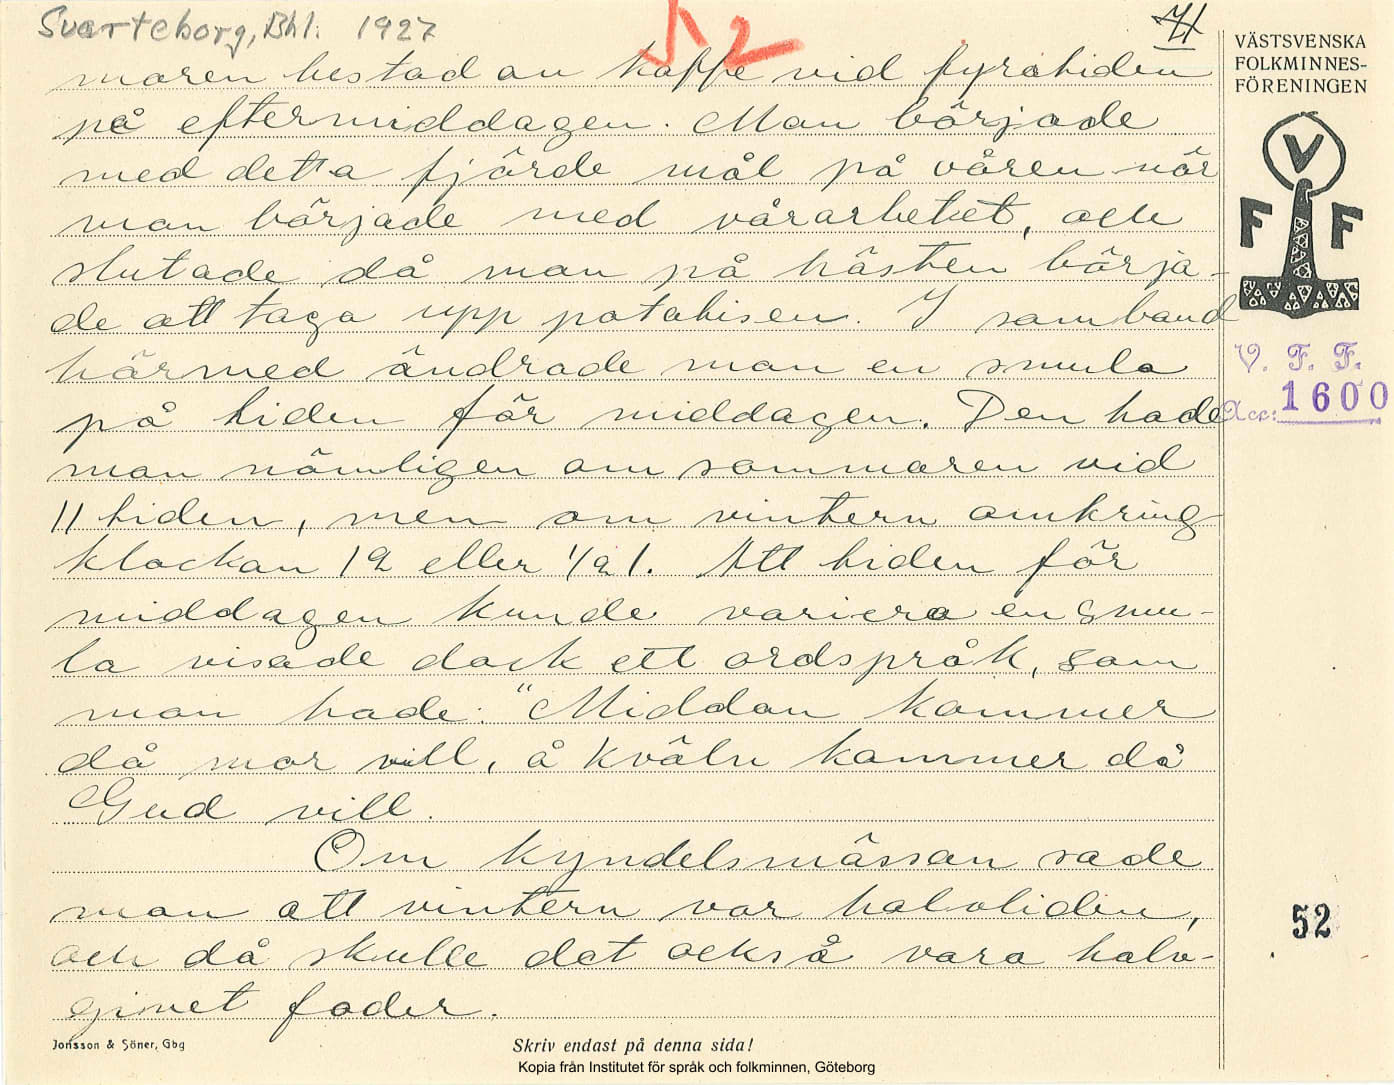 Svarteborg, Bhl. 1927
52
41
maren bestod av kaffe vid fyratiden
på eftermiddagen. Man började
med detta fjärde mål på våren när
man började med vårarbetet, och
slutade då man på hösten börja-
de att taga upp potatisen. I samband
härmed ändrade man en smula
på tiden för middagen. Den hade
man nämligen om sommaren vid
11 tiden, men om vintern omkring
klockan 12 eller 1/2 1. Att tiden för
middagen kunde variera en smu-
la visade dock ett ordspråk, som
man hade: "Middan kommer
då mor vill, å kväln kommer då
Gud vill.
Om kyndelsmässan sade
man att vintern var halvliden,
och då skulle det också vara halv-
givet foder.
VÄSTSVENSKA
FOLKMINNES-
FÖRENINGEN
V
F F
V. F. F.
Acc: 1600
52
Jonsson & Söner, Gbg
Skriv endast på denna sida!
Kopia från Institutet för språk och folkminnen, Göteborg